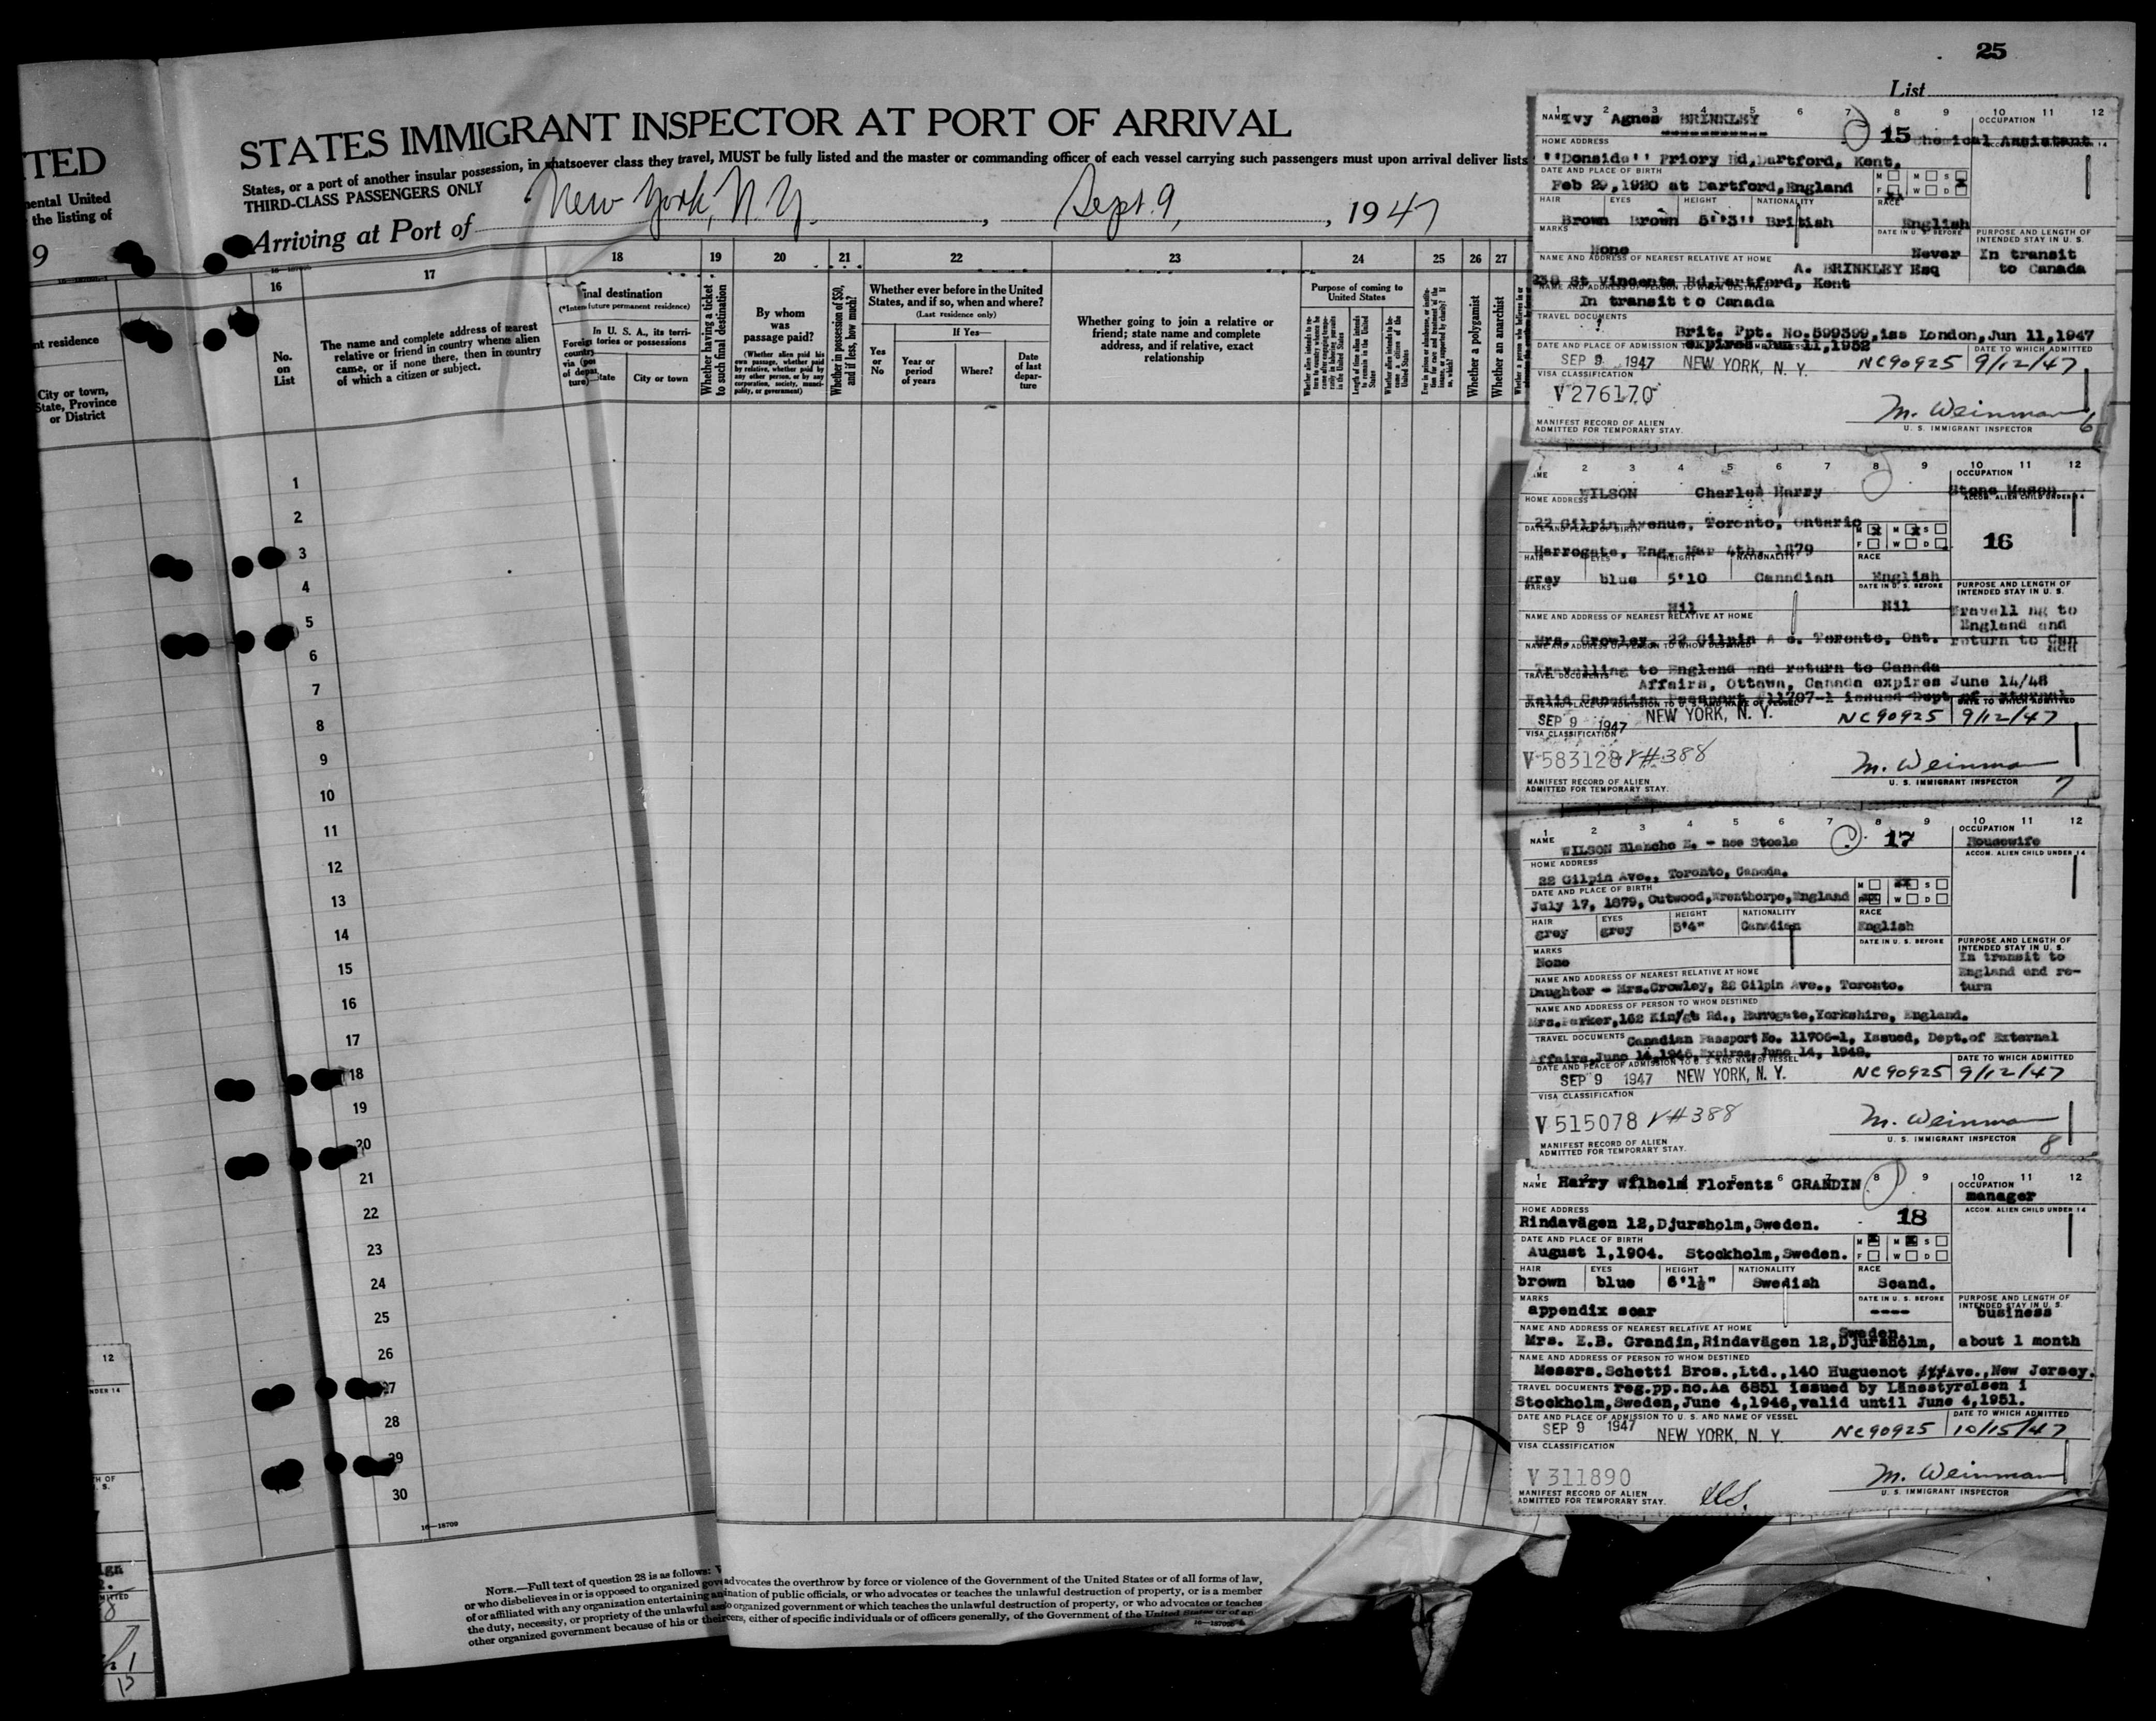 25
List
TED
ental United
the listing of
9
nt residence
City or town,
State, Province
or District
STATES IMMIGRANT INSPECTOR AT PORT OF ARRIVAL
States, or a port of another insular possession, in whatsoever class they travel, MUST be fully listed and the master or commanding officer of each vessel carrying such passengers must upon arrival deliver lists
THIRD-CLASS PASSENGERS ONLY
Arriving at Port of New York, N.Y. , Sept. 9, , 1947
16
17
18
19
20
21
22
23
24
25
26
27
No.
on
List
The name and complete address of nearest
relative or friend in country whence alien
came, or if none there, then in country
of which a citizen or subject.
final destination
(*Intended future permanent residence)
Foreign
country
via (port
of depar-
ture)
In U. S. A., its terri-
tories or possessions
State
City or town
Whether having a ticket
to such final destination
By whom
was
passage paid?
(Whether alien paid his
own passage, whether paid
by relative, whether paid by
any other person, or by any
corporation, society, munici-
pality, or government)
Whether in possession of $50,
and if less, how much?
Whether ever before in the United
States, and if so, when and where?
(Last residence only)
Yes
or
No
If Yes—
Year or
period
of years
Where?
Date
of last
depar-
ture
Whether going to join a relative or
friend; state name and complete
address, and if relative, exact
relationship
Purpose of coming to
United States
Length of time alien intends
to remain in the United
States
Whether a polygamist
Whether an anarchist
1
2
3
4
5
6
7
8
9
10
11
12
13
14
15
16
17
18
19
20
21
22
23
24
25
26
27
28
29
30
16—18709
NOTE.—Full text of question 28 is as follows:
or who disbelieves in or is opposed to organized gov advocates the overthrow by force or violence of the Government of the United States or of all forms of law,
of or affiliated with any organization entertaining an ination of public officials, or who advocates or teaches the unlawful destruction of property, or is a member
the duty, necessity, or propriety of the unlawful as to organized government or which teaches the unlawful destruction of property, or who advocates or teaches
other organized government because of his or their cers, either of specific individuals or of officers generally, of the Government of the United States or of an
1 2 3 4 5 6 7 8 9 10 11 12
NAME Ivy Agnes BRINKLEY
15
OCCUPATION
Chemical Assistant
HOME ADDRESS
''Donside'' Priory Rd,Dartford, Kent.
DATE AND PLACE OF BIRTH
Feb 29,1920 at Dartford,England
M M S
F W D
HAIR EYES HEIGHT NATIONALITY RACE
Brown Brown 5''3'' British English
MARKS
None
DATE IN U. S. BEFORE
Never
PURPOSE AND LENGTH OF
INTENDED STAY IN U. S.
In transit
to Canada
NAME AND ADDRESS OF NEAREST RELATIVE AT HOME
A. BRINKLEY Esq
239 St Vincents Rd,Dartford, Kent
NAME AND ADDRESS OF PERSON TO WHOM DESTINED
In transit to Canada
TRAVEL DOCUMENTS
Brit. Ppt. No.599399,iss London,Jun 11,1947
expires Jun 11,1952
DATE AND PLACE OF ADMISSION
SEP 9 1947 NEW YORK, N. Y. NC90925
DATE TO WHICH ADMITTED
9/12/47
VISA CLASSIFICATION
V 276170
M. Weinman
MANIFEST RECORD OF ALIEN
ADMITTED FOR TEMPORARY STAY.
U. S. IMMIGRANT INSPECTOR
6
1 2 3 4 5 6 7 8 9 10 11 12
NAME
WILSON Charles Harry
OCCUPATION
Stone Mason
ACCOM. ALIEN CHILD UNDER 14
HOME ADDRESS
22 Gilpin Avenue, Toronto, Ontario
DATE AND PLACE OF BIRTH
Harrogate, Eng. Mar 4th, 1879
M M S
F W D
16
HAIR EYES HEIGHT NATIONALITY RACE
grey blue 5'10 Canadian English
MARKS
Nil
DATE IN U. S. BEFORE
Nil
PURPOSE AND LENGTH OF
INTENDED STAY IN U. S.
Travell ng to
England and
return to Can
ada
NAME AND ADDRESS OF NEAREST RELATIVE AT HOME
Mrs. Crowley, 22 Gilpin A e. Toronto, Ont.
NAME AND ADDRESS OF PERSON TO WHOM DESTINED
Travelling to England and return to Canada
TRAVEL DOCUMENTS
Affairs, Ottawa, Canada expires June 14/48
Valid Canadian Passport #11707-1 issued Dept of External
DATE AND PLACE OF ADMISSION TO U. S. AND NAME OF VESSEL
DATE TO WHICH ADMITTED
SEP 9 1947 NEW YORK, N. Y. NC90925 9/12/47
VISA CLASSIFICATION
V 583128 V#388
M. Weinman
MANIFEST RECORD OF ALIEN
ADMITTED FOR TEMPORARY STAY.
U. S. IMMIGRANT INSPECTOR
7
1 2 3 4 5 6 7 8 9 10 11 12
NAME WILSON Blanche E. - nee Steele
17
OCCUPATION
Housewife
ACCOM. ALIEN CHILD UNDER 14
HOME ADDRESS
22 Gilpin Ave., Toronto, Canada.
DATE AND PLACE OF BIRTH
July 17, 1879, Outwood,Wrenthorpe,England
M M S
F W D
HAIR EYES HEIGHT NATIONALITY RACE
grey grey 5'4" Canadian English
MARKS
None
DATE IN U. S. BEFORE
PURPOSE AND LENGTH OF
INTENDED STAY IN U. S.
In transit to
England and re-
turn
NAME AND ADDRESS OF NEAREST RELATIVE AT HOME
Daughter - Mrs.Crowley, 22 Gilpin Ave., Toronto.
NAME AND ADDRESS OF PERSON TO WHOM DESTINED
Mrs.Parker,162 Kin/gs Rd., Harrogate,Yorkshire, England.
TRAVEL DOCUMENTS Canadian Passport No. 11706-1, Issued, Dept.of External
Affairs,June 14,1946,Expires,June 14, 1948.
DATE AND PLACE OF ADMISSION TO U. S. AND NAME OF VESSEL
DATE TO WHICH ADMITTED
SEP 9 1947 NEW YORK, N. Y. NC90925 9/12/47
VISA CLASSIFICATION
V 515078 V#388
M. Weinman
MANIFEST RECORD OF ALIEN
ADMITTED FOR TEMPORARY STAY.
U. S. IMMIGRANT INSPECTOR
8
1 2 4 5 6 7 8 9 10 11 12
NAME Harry Wilhelm Florentz GRANDIN
OCCUPATION
manager
ACCOM. ALIEN CHILD UNDER 14
HOME ADDRESS
Rindavägen 12,Djursholm,Sweden.
18
DATE AND PLACE OF BIRTH
August 1,1904. Stockholm,Sweden.
M M S
F W D
HAIR EYES HEIGHT NATIONALITY RACE
brown blue 6'1½" Swedish Scand.
MARKS
appendix scar
DATE IN U. S. BEFORE
----
PURPOSE AND LENGTH OF
INTENDED STAY IN U. S.
business
about 1 month
NAME AND ADDRESS OF NEAREST RELATIVE AT HOME
Sweden
Mrs. E.B. Grandin,Rindavägen 12,Djursholm,
NAME AND ADDRESS OF PERSON TO WHOM DESTINED
Messrs.Schetti Bros.,Ltd.,140 Huguenot Ave.,New Jersey.
TRAVEL DOCUMENTS reg.pp.no.Aa 6851 issued by Länsstyrelsen i
Stockholm,Sweden,June 4,1946,valid until June 4,1951.
DATE AND PLACE OF ADMISSION TO U. S. AND NAME OF VESSEL
DATE TO WHICH ADMITTED
SEP 9 1947 NEW YORK, N. Y. NC90925 10/15/47
VISA CLASSIFICATION
V 311890
M. Weinman
MANIFEST RECORD OF ALIEN
ADMITTED FOR TEMPORARY STAY.
U. S. IMMIGRANT INSPECTOR